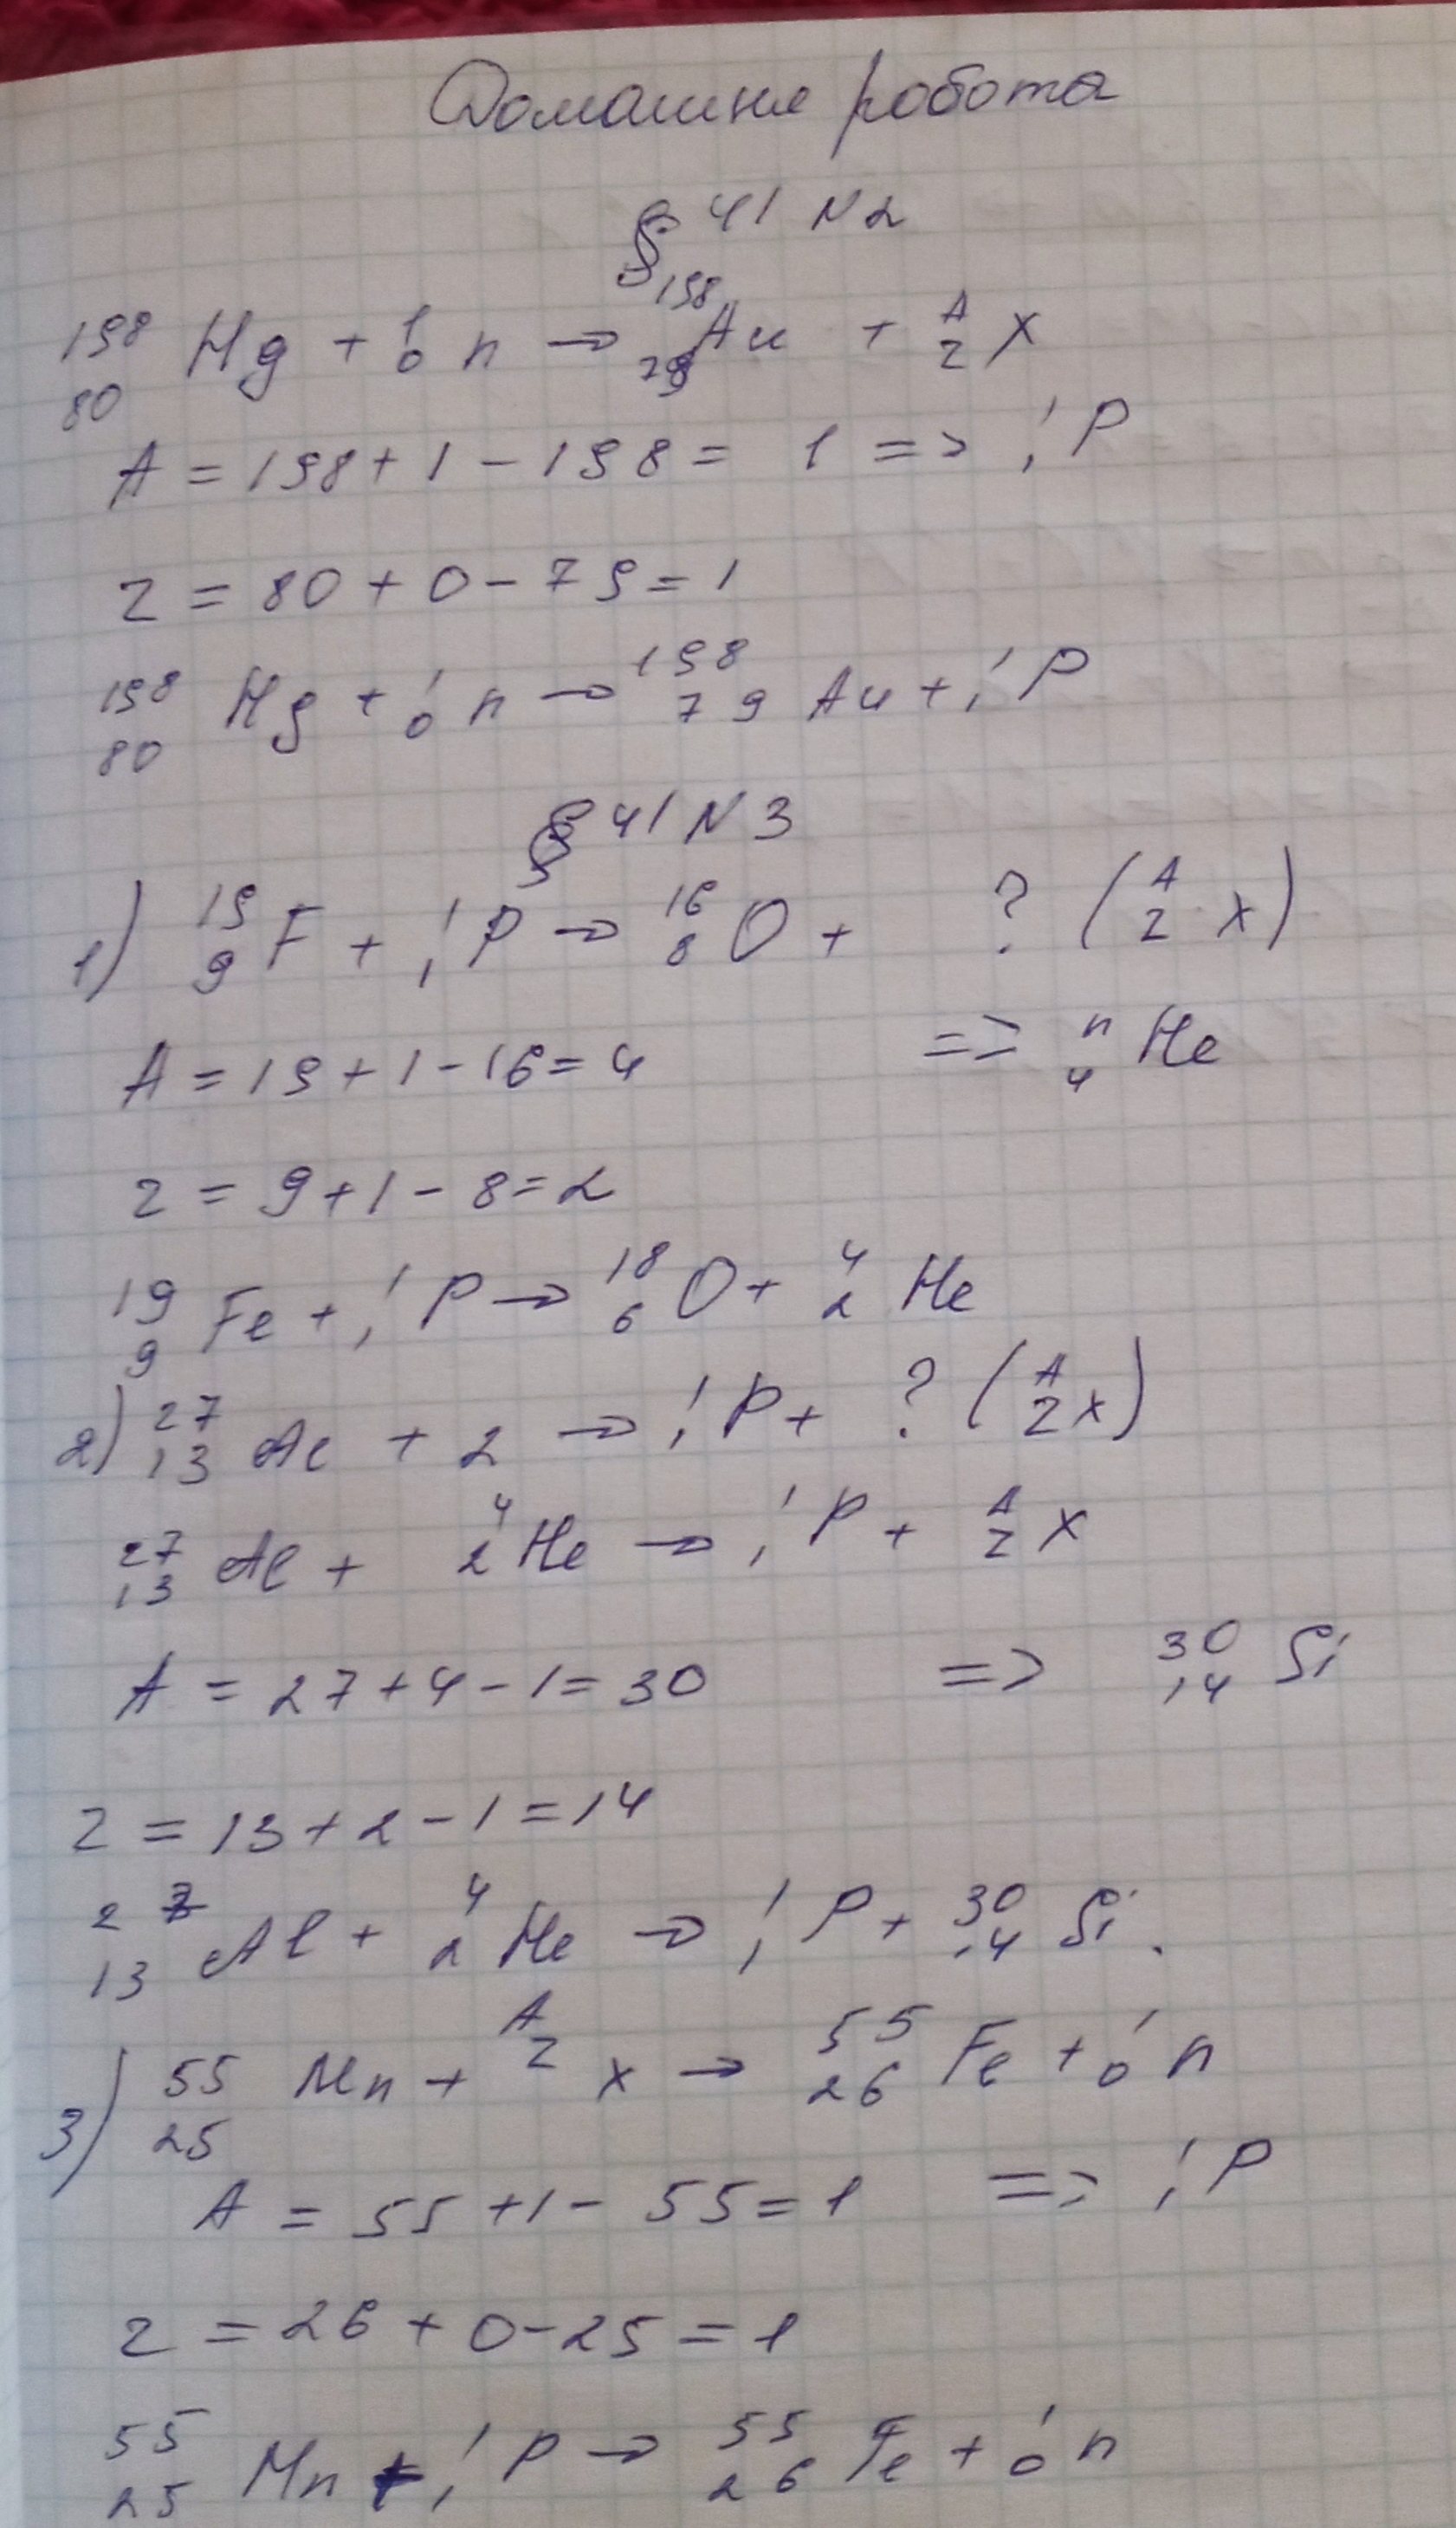 Домашня робота
§ 41 N2
¹⁹⁸₈₀ Hg + ¹₀ n → ¹⁹⁸₇₉ Au + ᴬ_Z X
A = 198 + 1 - 198 = 1 => ¹₁ P
Z = 80 + 0 - 79 = 1
¹⁹⁸₈₀ Hg + ¹₀ n → ¹⁹⁸₇₉ Au + ¹₁ P
§ 41 N 3
1) ¹⁹₉ F + ¹₁ P → ¹⁶₈ O + ? (ᴬ_Z X)
A = 19 + 1 - 16 = 4 => ⁿ₄ He
Z = 9 + 1 - 8 = 2
¹⁹₉ Fe + ¹₁ P → ¹⁸₆ O + ⁴₂ He
2) ²⁷₁₃ Al + 2 → ¹₁ P + ? (ᴬ_Z X)
²⁷₁₃ Al + ⁴₂ He → ¹₁ P + ᴬ_Z X
A = 27 + 4 - 1 = 30 => ³⁰₁₄ Si
Z = 13 + 2 - 1 = 14
²⁷₁₃ Al + ⁴₂ He → ¹₁ P + ³⁰₁₄ Si.
3) ⁵⁵₂₅ Mn + ᴬ_Z X → ⁵⁵₂₆ Fe + ¹₀ n
A = 55 + 1 - 55 = 1 => ¹₁ P
Z = 26 + 0 - 25 = 1
⁵⁵₂₅ Mn + ¹₁ P → ⁵⁵₂₆ Fe + ¹₀ n